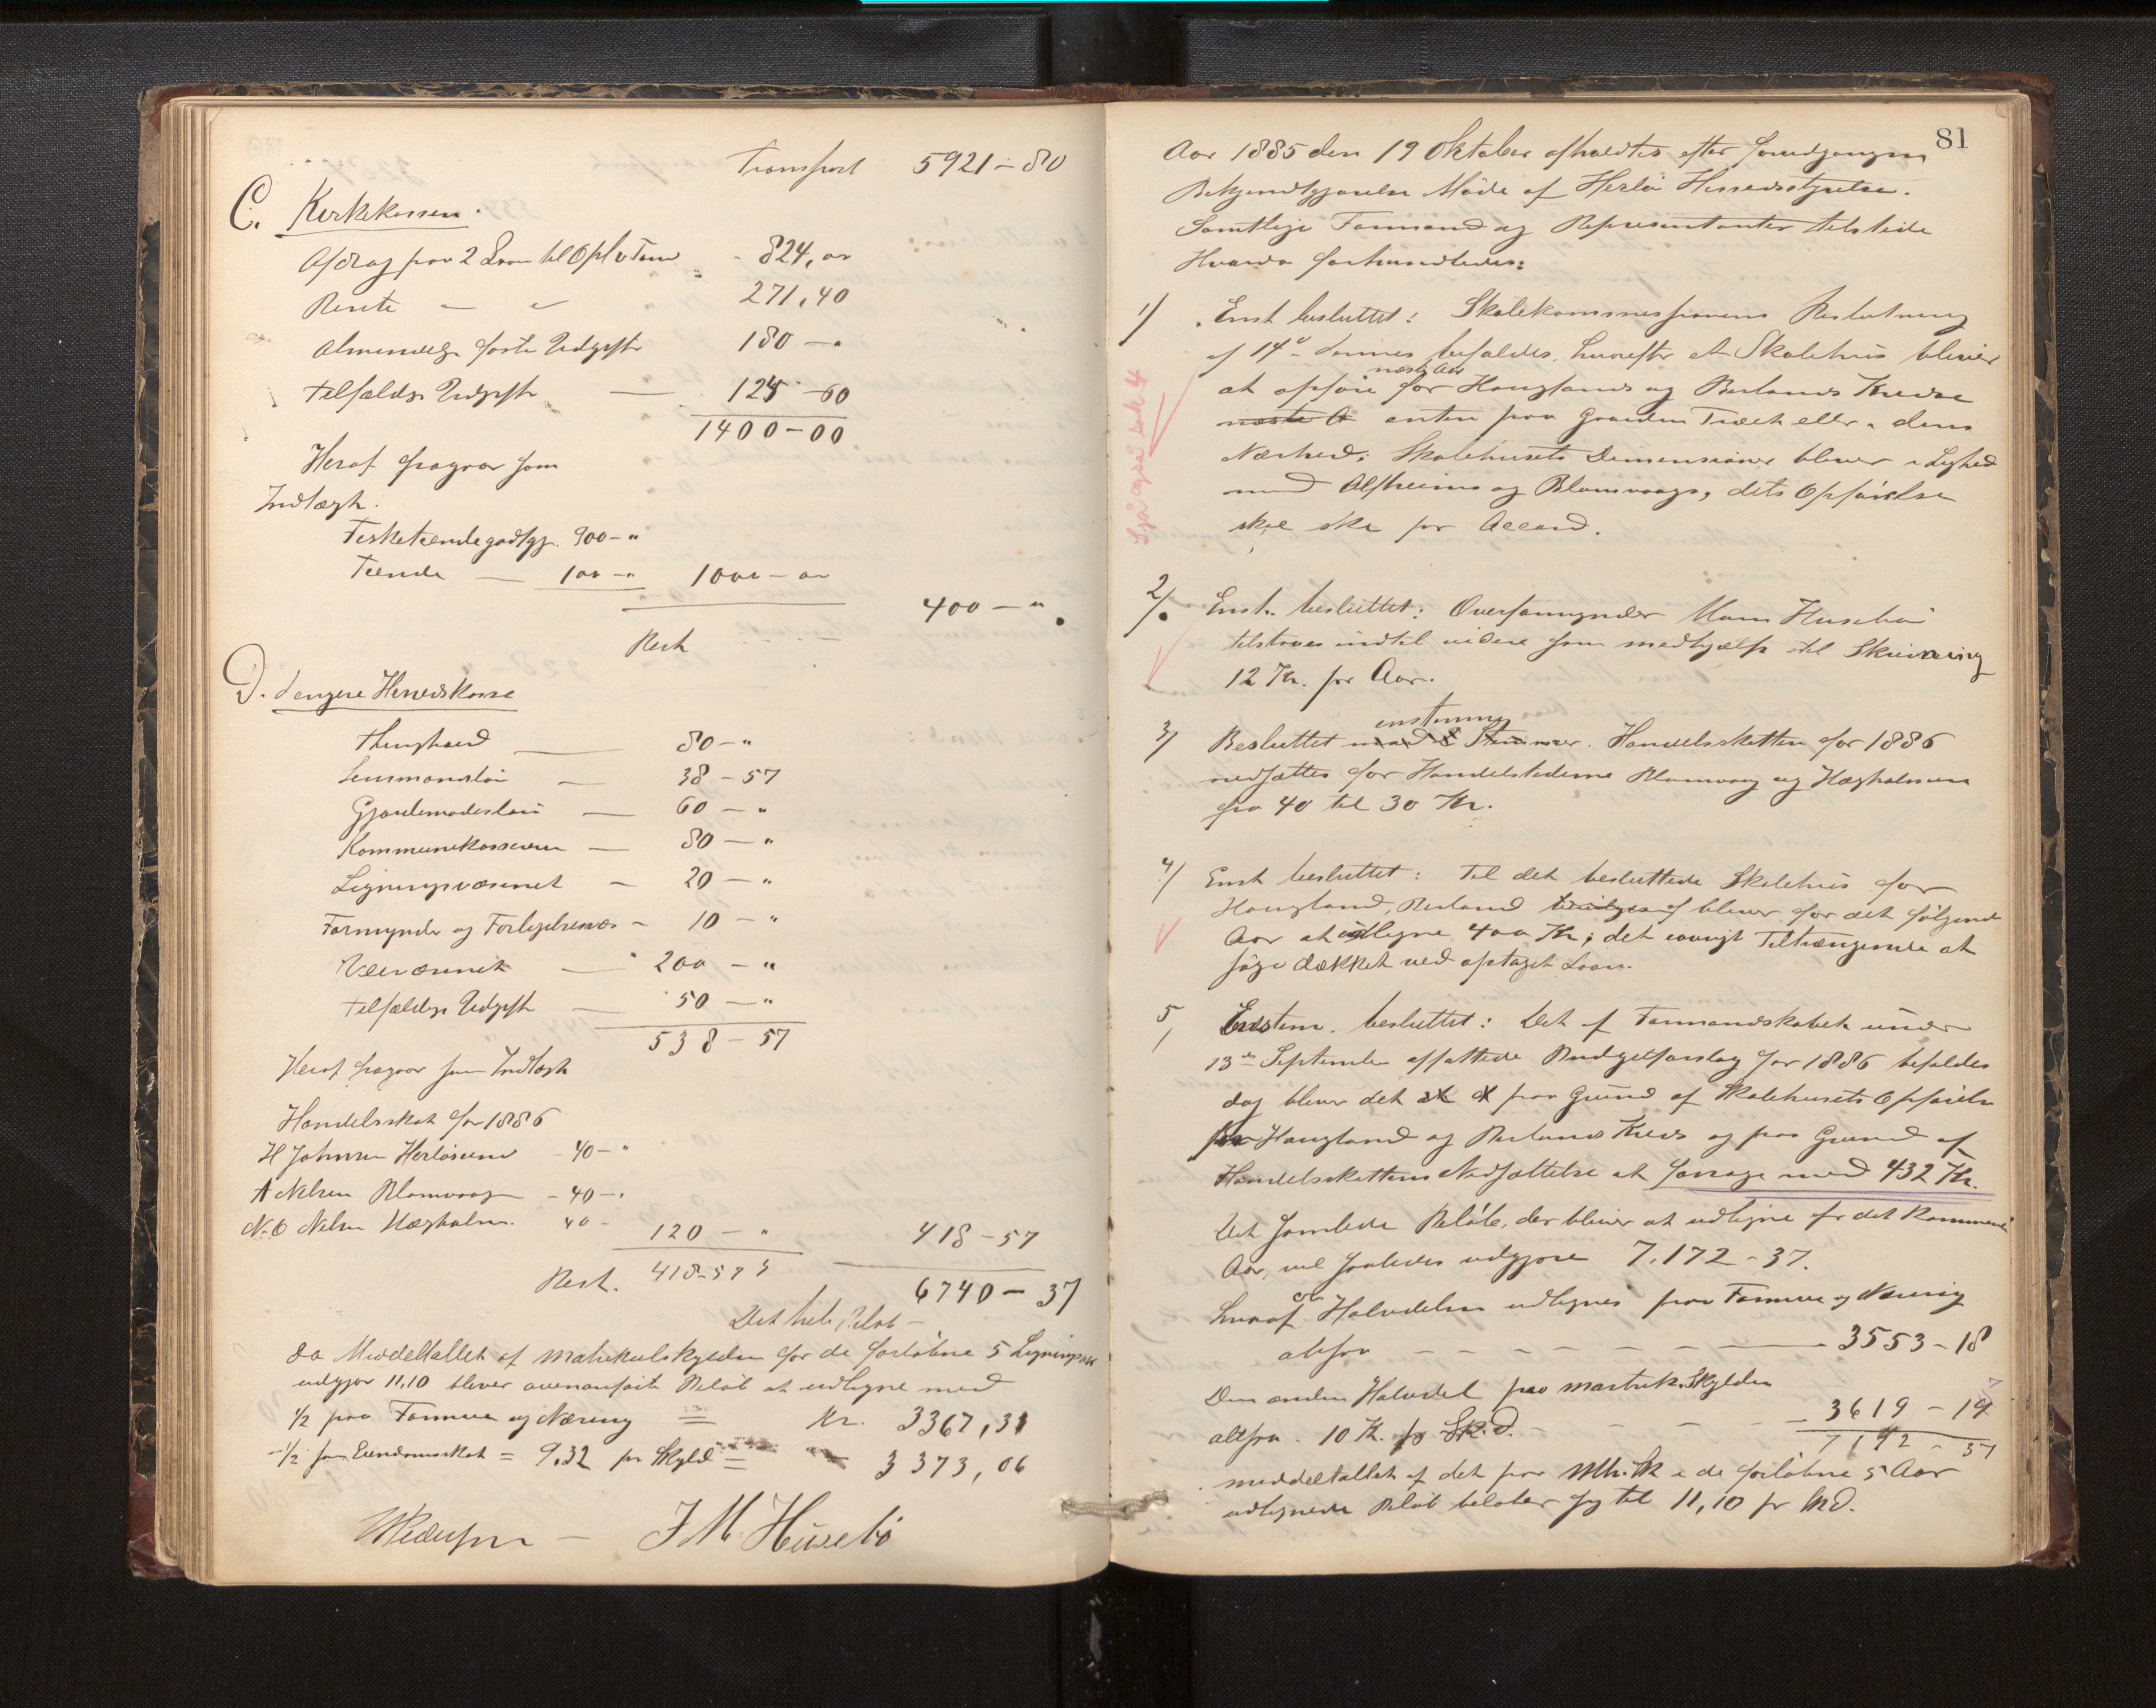 Transport 5921-80
C. Kirkekassen.
Afdrag paa 2 Laan til Opl v Fond - 824,00
Rente — „ 271,40
Almindelige faste Udgifter 180 — „
Tilfældige Udgifter — 125-60
1400-00
Heraf fragaar som
Indtægt.
Fisketiendegodtgj. 900-„
Tiende — 100-„ 1000-00
400-„
Rest
D. den egne Herredskasse
Thinghold — 80-„
Lensmandsløn — 38-57
Gjordemoderløn — 60-„
Kommunekassereren — 80-„
Ligningsvæsenet — 20-„
Formynder og Forligelsesvæs - 10-„
Veivæsenet — 200-„
Tilfældige Udgifter — 50-„
538-57
Heraf fragaar som Indtægt
Handelsskat for 1886
H Johnsen Herløsund - 40-„
A Nilsen Blomvaag - 40-„
N. O Nilsen Hægholm. 40- 120-„ 418-57
Rest. 418-57
6740-37
Det hele Beløb -
Da Middeltallet af Matrikulskylden for de forløbne 5 Ligningsaar
udgjør 11,10 bliver ovenanførte Beløb at udligne med
1/2 paa Formue og Næring = Kr. 3367,31
-1/2 som Eiendomsskat = 9,32 pr Skyld = 3373,06
JM. Husebø
81
Aar 1885 den 19 Oktober afholdtes efter foredgangen
Bekjendtgjørelse Møde af Herlø Herredsstyrelse.
Samtlige Formænd og Repræsentanter tilstede
Hvorda forhandledes:
1/ Enst besluttet: Skolekommissionens Beslutning
af 14de dennes bifaldes, hvorefter et Skolehus bliver
næste Aar
at opføre for Hougland og Berlands Kredse
næste A enten paa Gaarden Træet eller i dens
Nærhed; Skolehusets Dimensioner bliver i Lighed
med Alfheims og Blomvaags, dets Opførelse
skal ske pr Accord.
Sjå også sak 4
2/. Enst. besluttet: Overformynder Mons Husebø
tilstaaes indtil videre som medhjælp til Skrivning
12 Kr. pr Aar.
enstemmig
3/ Besluttet med 8 Stemmer. Handelsskatten for 1886
nedsættes for Handelsstederne Blomvaag og Hægholmen
fra 40 til 30 Kr.
4/ Enst besluttet: Til det besluttede Skolehus for
Hougland, Berland bliver for det følgende
Aar at udligne 400 Kr; det øvrigt Tiltrængende at
søge dækket ved optaget Laan.
5/ Enstem. besluttet: Det af Formandskabet under
13de September affattede Budgetforslag for 1886 bifaldes
dog bliver det paa Grund af Skolehusets Opførelse
for Hougland og Berlands Kreds og paa Grund af
Handelsskattens Nedsættelse at forøge med 432 Kr.
Det samlede Beløb, der bliver at udligne for det kommende
Aar, vil saaledes udgjøre 7,172-37.
hvoraf Halvdelen udlignes paa Formue og Næring
altsaa - - - - - - - 3553-18
Den anden Halvdel paa Matrik.Skylden
altsaa . 10 Kr. pr Sk.D. - - - 3619-19
7172-37
middeltallet af det paa Mtr.Sk i de forløbne 5 Aar
udlignede Beløb beløber sig til 11,10 pr Skd.